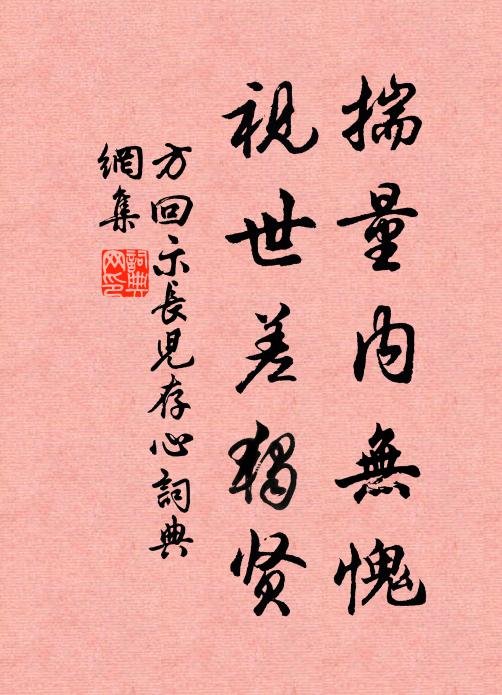 揣量内無愧
視世差獨贤
方回示長児存心詞典
網集
詞典网印